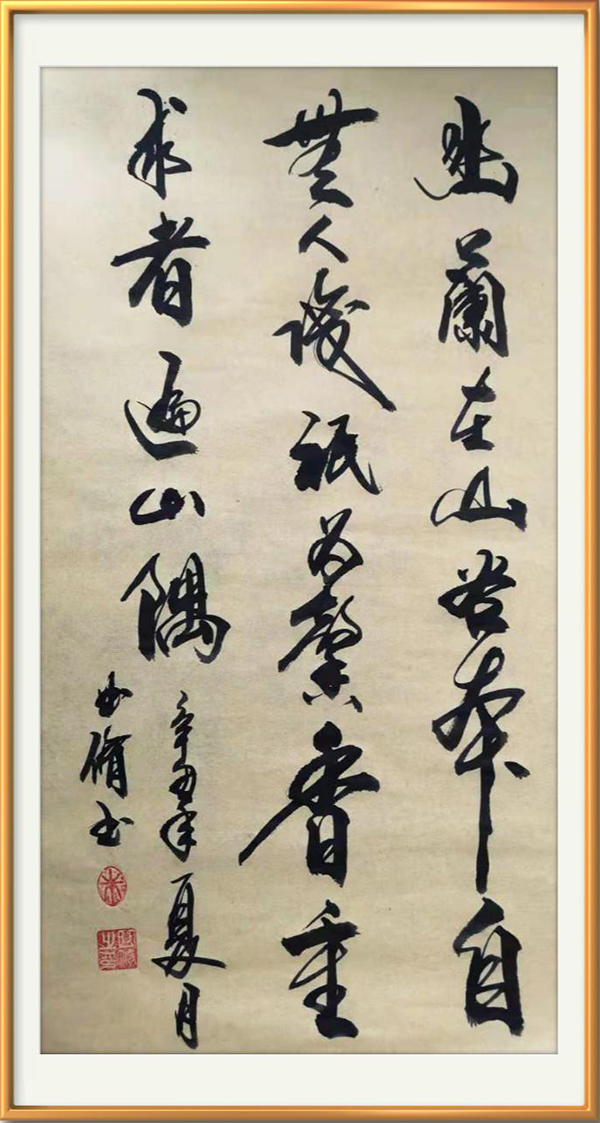 幽蘭在山谷本自
無人識祇為馨香重
求者遍山隅
辛丑年夏月
書